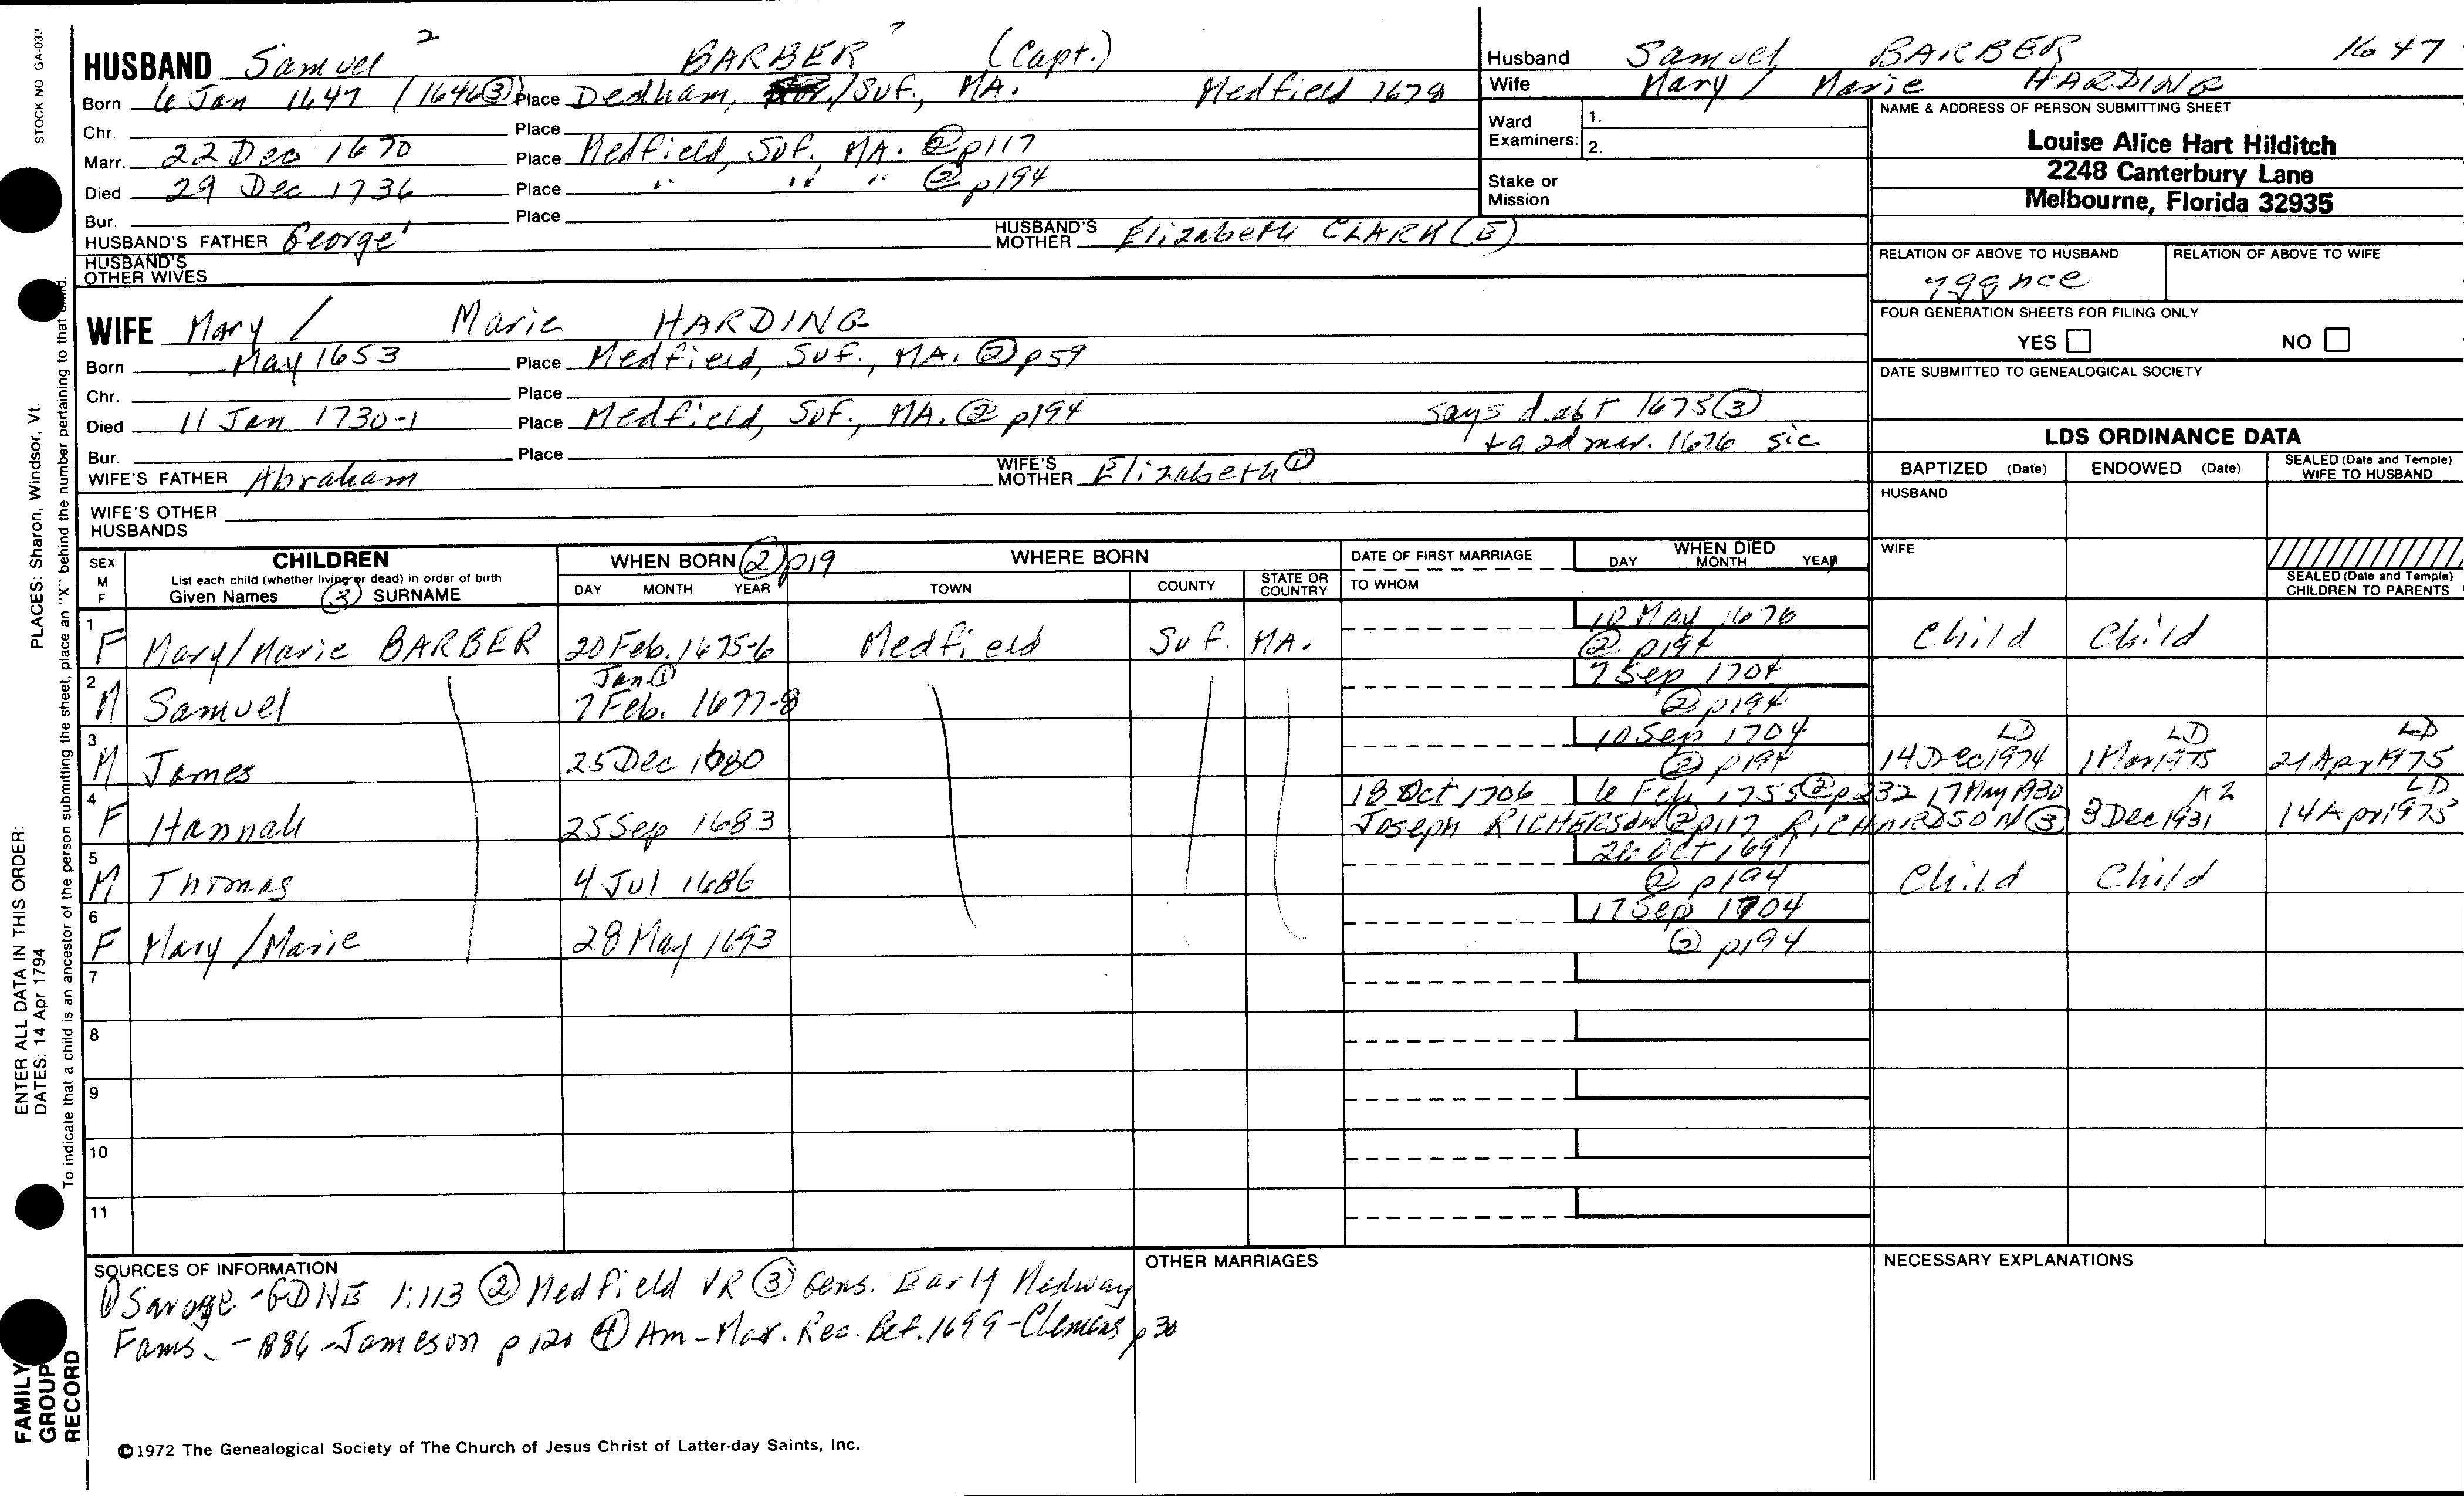 STOCK NO GA-032
HUSBAND Samuel 2 BARBER (Capt.)
Born 6 Jan 1647 /1646③ Place Dedham, /Suf., MA. Medfield 1678
Chr. Place
Marr. 22 Dec 1670 Place Medfield, Suf., MA. ② p117
Died 29 Dec 1736 Place " " " ② p194
Bur. Place
HUSBAND'S FATHER George' HUSBAND'S MOTHER Elizabeth CLARK (E)
HUSBAND'S OTHER WIVES
WIFE Mary / Marie HARDING
Born May 1653 Place Medfield, Suf., MA. ② p59
Chr. Place
Died 11 Jan 1730-1 Place Medfield, Suf., MA. ② p194 says d. abt 1675③
+ a 2d mar. 1676 sic
Bur. Place
WIFE'S FATHER Abraham WIFE'S MOTHER Elizabeth①
WIFE'S OTHER HUSBANDS
Husband Samuel BARBER 1647
Wife Mary / Marie HARDING
Ward Examiners: 1.
2.
Stake or Mission
NAME & ADDRESS OF PERSON SUBMITTING SHEET
Louise Alice Hart Hilditch
2248 Canterbury Lane
Melbourne, Florida 32935
RELATION OF ABOVE TO HUSBAND RELATION OF ABOVE TO WIFE
7ggnce
FOUR GENERATION SHEETS FOR FILING ONLY
YES NO
DATE SUBMITTED TO GENEALOGICAL SOCIETY
LDS ORDINANCE DATA
BAPTIZED (Date) ENDOWED (Date) SEALED (Date and Temple) WIFE TO HUSBAND
HUSBAND
WIFE
SEALED (Date and Temple) CHILDREN TO PARENTS
SEX M F CHILDREN WHEN BORN ② p19 WHERE BORN DATE OF FIRST MARRIAGE WHEN DIED
List each child (whether living or dead) in order of birth
Given Names ③ SURNAME DAY MONTH YEAR TOWN COUNTY STATE OR COUNTRY TO WHOM DAY MONTH YEAR
1 F Mary/Marie BARBER 20 Feb. 1675-6 Medfield Suf. MA. 10 May 1676 ② p194 Child Child
2 M Samuel Jan① 7 Feb. 1677-8 7 Sep 1704 ② p194
3 M James 25 Dec 1680 10 Sep 1704 ② p194 LD 14 Dec 1974 LD 1 Mar 1975 LD 21 Apr 1975
4 F Hannah 25 Sep 1683 18 Oct 1706 6 Feb 1755 ② p232 17 May 1930 LD
Joseph RICHERSON ② p117 RICHARDSON ③ 3 Dec 1931 14 Apr 1975
5 M Thomas 4 Jul 1686 26 Oct 1691 ② p194 Child Child
6 F Mary/Marie 28 May 1693 17 Sep 1704 ② p194
7
8
9
10
11
SOURCES OF INFORMATION
① Savage - GDNE 1:113 ② Medfield VR ③ Gens. Early Medway
Fams. - 1886 - Jameson p 120 ④ Am - Mar. Rec. Bef. 1699 - Clemens p 30
OTHER MARRIAGES
NECESSARY EXPLANATIONS
©1972 The Genealogical Society of The Church of Jesus Christ of Latter-day Saints, Inc.
ENTER ALL DATA IN THIS ORDER:
DATES: 14 Apr 1794 PLACES: Sharon, Windsor, Vt.
To indicate that a child is an ancestor of the person submitting the sheet, place an "X" behind the number pertaining to that child.
FAMILY GROUP RECORD